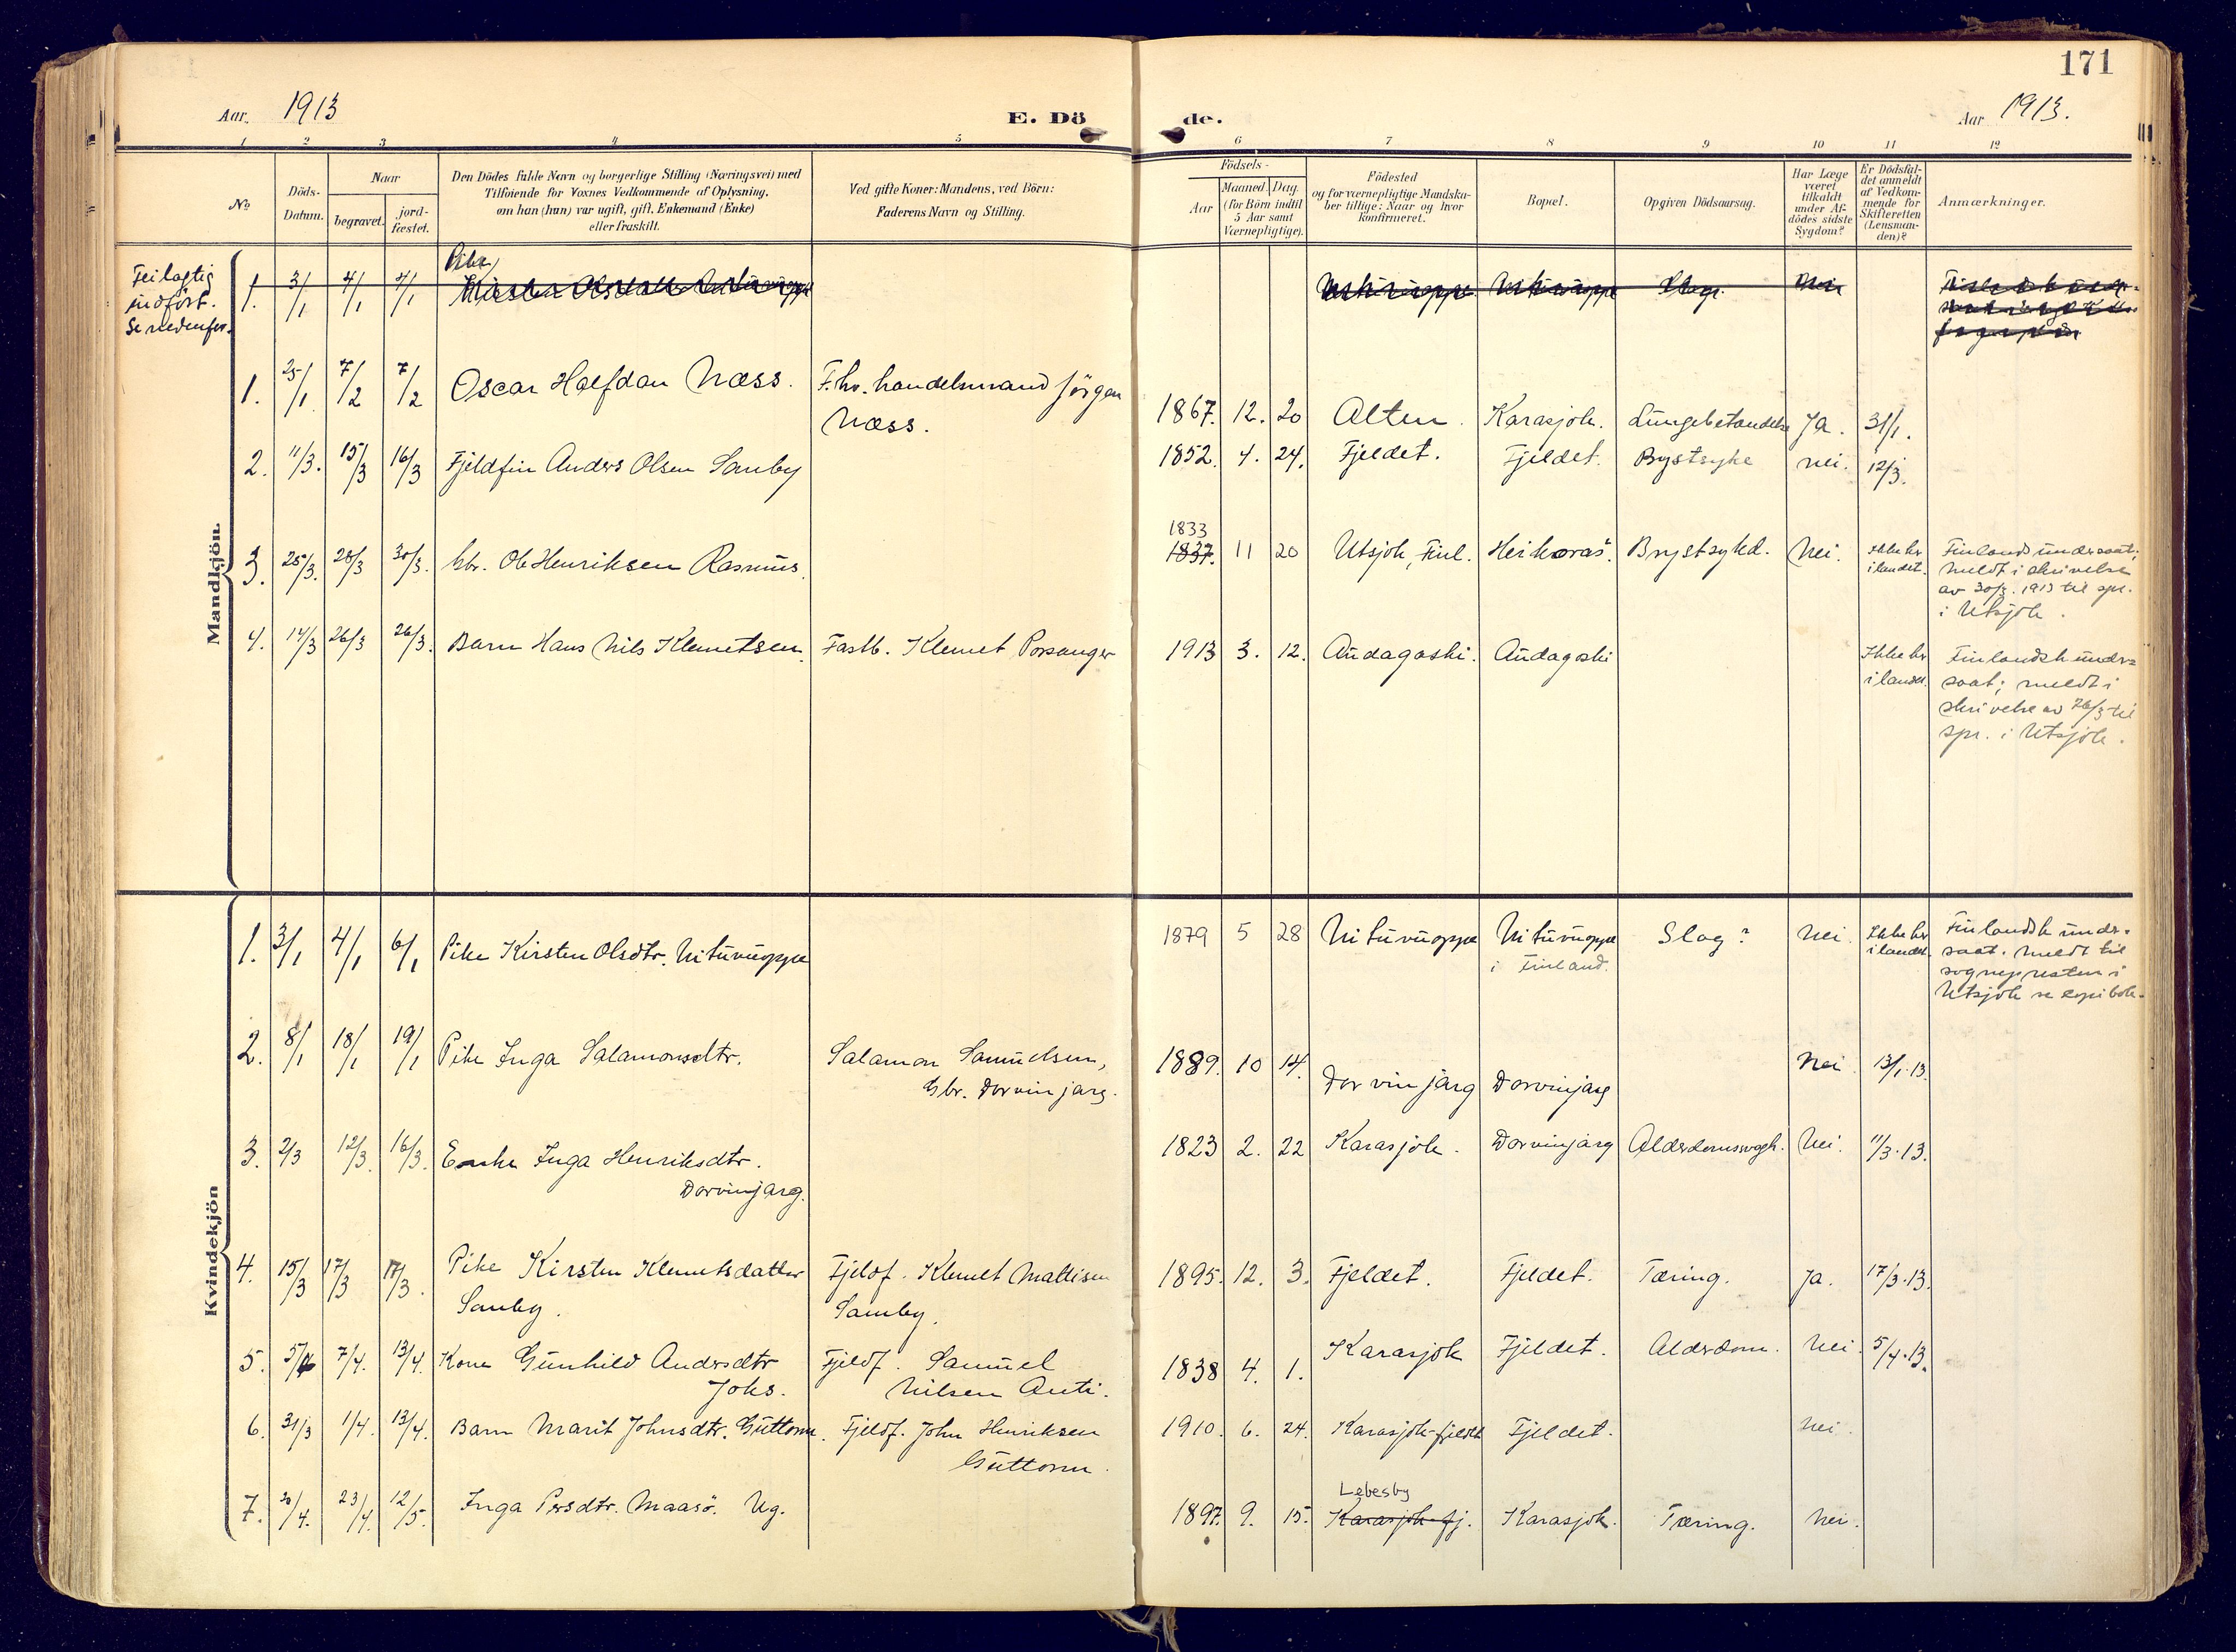 171
Aar 1913
E. Döde.
Aar 1913.
1 2 3 4 5 6 7 8 9 10 11 12
No
Döds-
Datum.
Naar
begravet.
jord-
fæstet.
Den Dödes fulde Navn og borgerlige Stilling (Næringsvei) med
Tilföiende for Voxnes Vedkommende af Oplysning,
om han (hun) var ugift, gift, Enkemand (Enke)
eller fraskilt.
Ved gifte Koner: Mandens, ved Börn:
Faderens Navn og Stilling.
Födsels-
Aar
Maaned. Dag.
(for Börn indtil
5 Aar samt
Værnepligtige).
Födested
og for værnepligtige Mandska-
ber tillige: Naar og hvor
konfirmeret.
Bopæl.
Opgiven Dödsaarsag.
Har Læge
været
tilkaldt
under Af-
dödes sidste
Sygdom?
Er Dödsfal-
det anmeldt
af Vedkom-
mende for
Skifteretten
(Lensman-
den)?
Anmærkninger.
Mandkjön.
Feilagtig
indført.
Se nedenfor.
1. 3/1 4/1 Pike
Nei
1. 25/1 7/2 7/2 Oscar Halfdan Næss. F. hv. handelsmand Jörgen
Næss.
1867. 12. 20 Alten. Karasjok. Lungebetændelse Ja. 31/1.
2. 11/3. 15/3 16/3 Fjeldfin Anders Olsen Samby
1852. 4. 24. Fjeldet. Fjeldet. Bystsyke nei. 12/3.
3. 25/3. 28/3 30/3. Gbr. Ole Henriksen Rasmus.
1833
1837. 11 20 Utsjok, Finl. Heikoras. Brystsykd. Nei. Ikke her
i landet.
Finlands undersaat;
meldt i skrivelse
av 30/3. 1913 til spr.
i Utsjok.
4. 14/3 26/3 26/3. Barn Hans Nils Klemetsen. Fastb. Klemet Porsanger
1913 3. 12. Audagoski. Audagoski
Ikke her
i landet.
Finlandsk under=
saat; meldt i
skrivelse av 26/3 til
spr. i Utsjok.
Kvindekjön
1. 3/1 4/1 6/1 Pike Kirsten Olsdtr. Nituvuoppe
1879 5 28 Nituvuoppe Nituvuoppe
i Finland.
Slag? Nei. Ikke her
i landet.
Finlandsk under-
saat. Meldt til
sognepresten i
Utsjok se kopibok.
2. 8/1 18/1 19/1 Pike Inga Salamonsdtr. Salamon Samuelsen,
Gbr. Dorvinjarg.
1889. 10 14. Dorvinjarg Dorvinjarg Nei 13/1.13.
3. 2/3 12/3. 16/3. Enke Inga Henriksdtr.
Dorvinjarg.
1823 2. 22 Karasjok. Dorvinjarg Alderdomssvagh. Nei. 11/3.13.
4. 15/3 17/3 17/3. Pike Kirsten Klemetsdatter Fjeldf. Klemet Mattisen
Samby. Samby.
1895. 12. 3. Fjeldet. Fjeldet. Tæring. Ja. 17/3.13.
5. 5/4 7/4. 13/4. Kone Gunhild Andersdtr Fjeldf. Samuel
Joks. Nilsen Anti.
1838 4. 1. Karasjok Fjeldet. Alderdom. Nei. 5/4.13.
6. 31/3 1/4. 13/4. Barn Marit Johnsdtr. Guttorm. Fjeldf. John Henriksen
Guttorm.
1910. 6. 24. Karasjok-fjeldet Fjeldet. Nei.
7. 20/4. 23/4. 12/5. Inga Persdtr. Maasö. Ug.
Lebesby
1897. 9. 15. Karasjok-fj. Karasjok. Tæring. Nei.